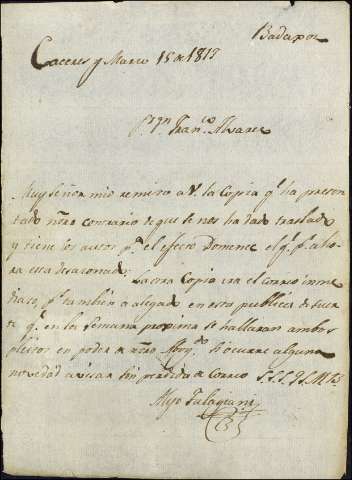 Badajoz
Caceres y Marzo 15 de 1813
Sr. Dn. Franco. Alvarez
Muy Señor mio remito a V. la Copia q. ha presen
tado nro contrario de que se nos ha dado traslado
y tiene los autos pa. el efecto Domene el q. pr. aho
ra esta desazonado;
La otra Copia ira el correo inme
diato, pr. también a alegado en esta publica de suer
te q. en la Semana proxima se hallaran ambos
pleitos en poder de nro Abogdo. Si ocurre alguna
novedad avisara sin perdida de Correo S. S. S. Q. S. M. B.
Alejo